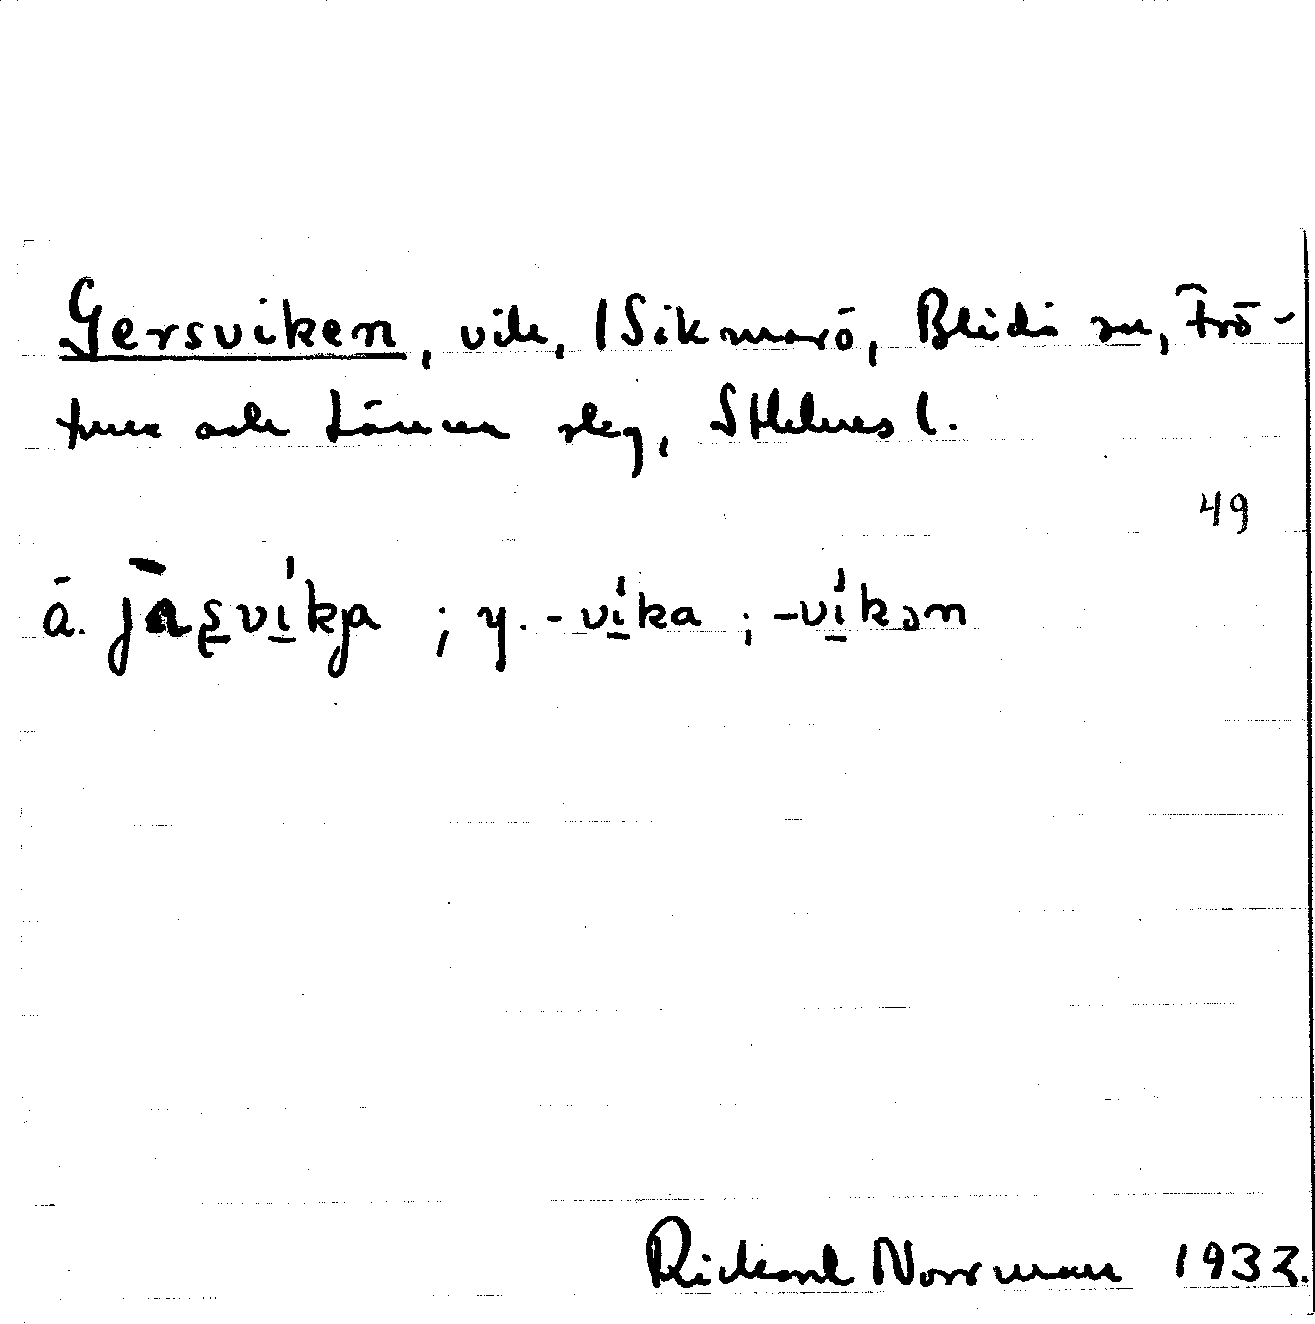 Gersviken, vik, 1 Sikmarö, Blidö sn, Frö-
tuna och Länna skg, Sthlms l.
49
ä. jàșvíkja ; y. -víka ; -víkən
Rickard Norrman 1933.